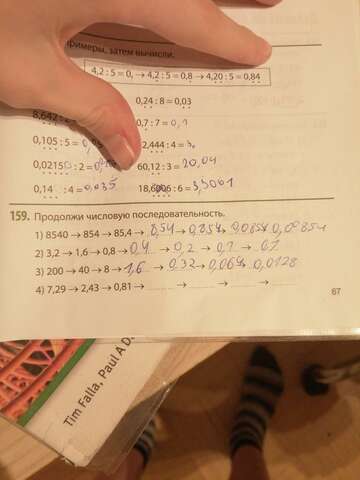 затем вычисли.
4,2 : 5 = 0, → 4,2 : 5 = 0,8 → 4,20 : 5 = 0,84
0,24 : 8 = 0,03
8,642 : 2
0,7 : 7 = 0,1
0,105 : 5 = 0,
2,444 : 4 =
0,02150 : 2 =
60,12 : 3 = 20,04
0,14 : 4 = 0,035
18,6006 : 6 =
159. Продолжи числовую последовательность.
1) 8540 → 854 → 85,4 → 8,54 → 0,854 → 0,0854
2) 3,2 → 1,6 → 0,8 → 0,4 → 0,2 → 0,1 →
3) 200 → 40 → 8 → 1,6 → 0,32 → 0,064 → 0,0128
4) 7,29 → 2,43 → 0,81 → → → →
67
Tim Falla, Paul A D